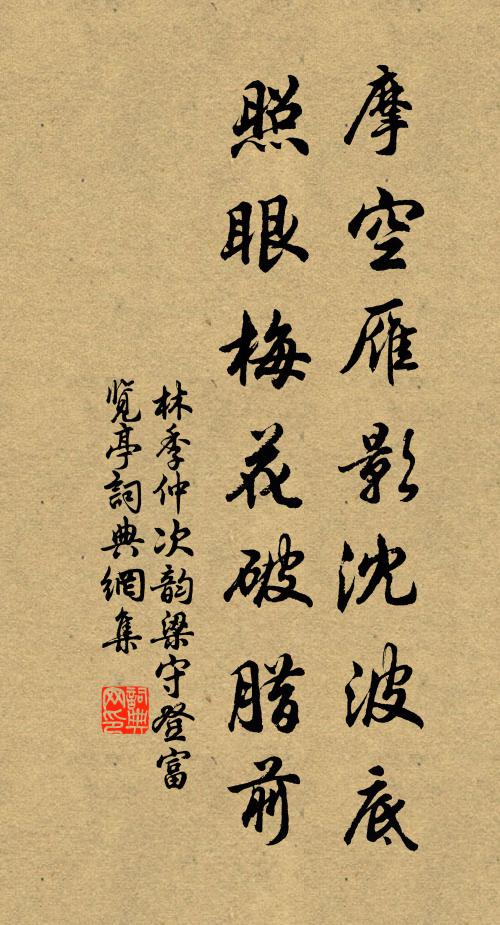 摩空雁影沈波底
照眼梅花破腊前
林季仲次韵梁守登富
览亭詞典網集
詞典网印